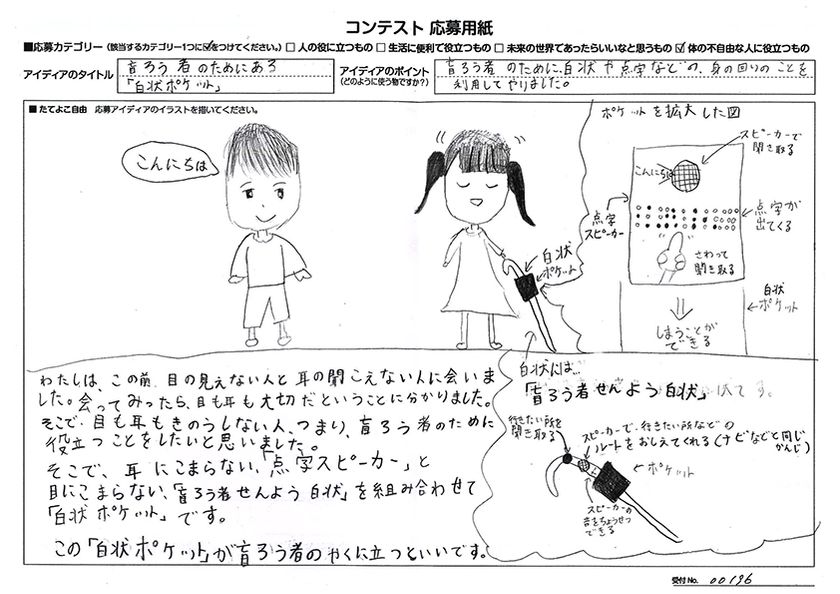 コンテスト 応募用紙
■応募カテゴリー（該当するカテゴリー1つに☑をつけてください。）□ 人の役に立つもの □ 生活に便利で役立つもの □ 未来の世界であったらいいなと思うもの ☑ 体の不自由な人に役立つもの
アイディアのタイトル
盲ろう者のためにある
「白状ポケット」
アイディアのポイント
（どのように使う物ですか？）
盲ろう者のために、白状や点字などの、身の回りのことを
利用してやりました。
■たてよこ自由 応募アイディアのイラストを描いてください。
こんにちは
白状
ポケット
ポケットを拡大した図
スピーカーで
聞き取る
こんにちは
点字
スピーカー
点字が
出てくる
さわって
聞き取る
白状
ポケット
しまうことが
できる
わたしは、この前、目の見えない人と耳の聞こえない人に会いま
した。会ってみったら、目も耳も大切だということに分かりました。
そこで、目も耳もきのうしない人、つまり、盲ろう者のために
役立つことをしたいと思いました。
そこで、耳にこまらない、「点字スピーカー」と
目にこまらない、「盲ろう者せんよう白状」を組み合わせて
「白状ポケット」です。
この「白状ポケット」が盲ろう者のやくに立つといいです。
白状には…
「盲ろう者せんよう白状」
行きたい所を
聞き取る
スピーカーで、行きたい所などの
ルートをおしえてくれる（ナビなどと同じ
かんじ）
ポケット
スピーカーの
音をちょうせつ
できる
受付No. 00196